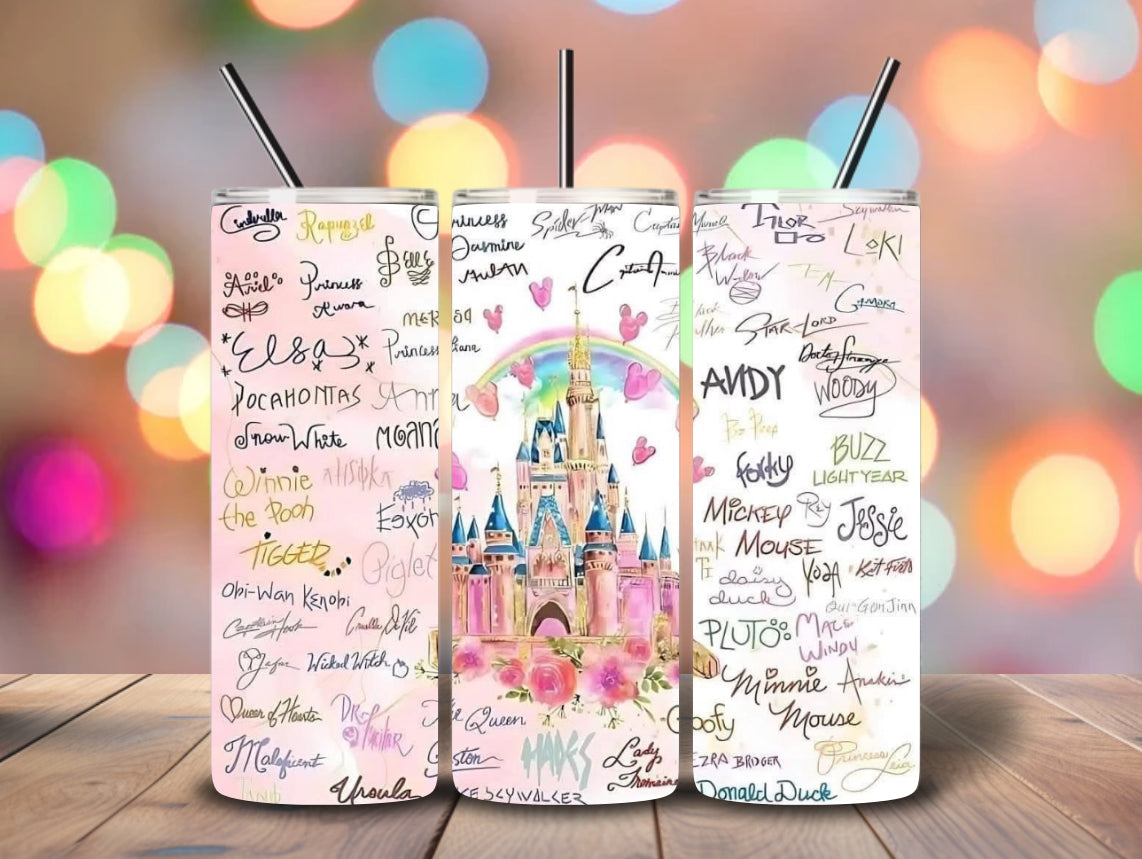 Cinderella
Rapunzel
Belle
Ariel
Princess
Aurora
MERIDA
Elsa
Princess
POCAHONTAS
Ann
Snow White
MOANA
Winnie
the Pooh
Eeyor
TIGGER
Piglet
Obi-Wan Kenobi
Captain Hook
Cruella De Vil
Jafar
Wicked Witch
Queen of Hearts
DR.
Facilier
Maleficent
Ursula
rincess
Jasmine
MULAN
Spider-Man
Captai
Captain Ameri
iana
e Queen
ston
HADES
Lady
Tremaine
KE SKYWALKER
Marvel
TAYLOR
Skywalker
LOKI
Black
Widow
Gamora
STAR-LORD
Doctor Strange
ANDY
WOODY
Bo Peep
Forky
BUZZ
LIGHTYEAR
MICKEY
MOUSE
Rey
Jessie
daisy
duck
YODA
Kit Fisto
Qui-Gon Jinn
PLUTO
MACE
WINDU
Minnie
Mouse
Anakin
oofy
EZRA BRIDGER
Princess
Leia
Donald Duck